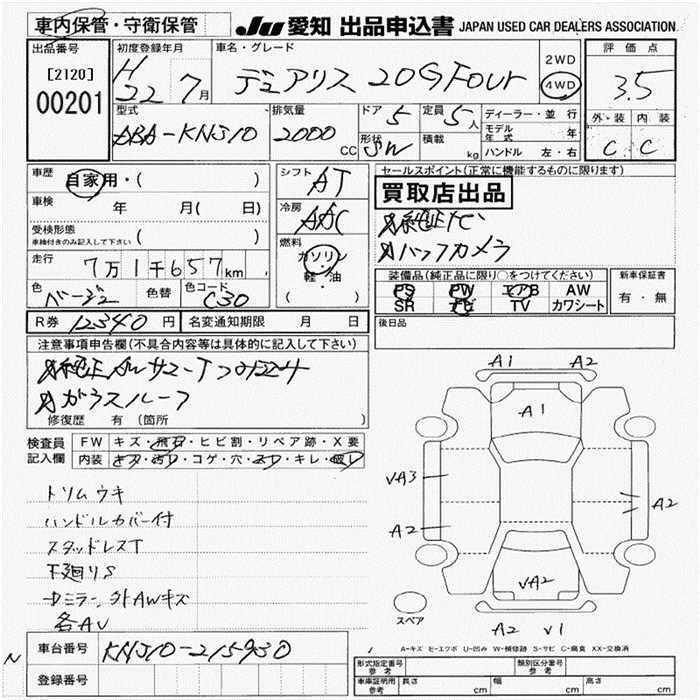 車内保管・守衛保管
JU 愛知 出品申込書 JAPAN USED CAR DEALERS ASSOCIATION
出品番号
[2120]
00201
初度登録年月
H22 7月
車名・グレード
デュアリス 20G Four
2WD
4WD
評価点
3.5
外・装 内・装
C C
型式
DBA-KNJ10
排気量
2000 CC
ドア 5
形状 SW
定員 5人
積載 kg
ディーラー・並行
モデル年式 年
ハンドル 左・右
車歴
自家用・( )
車検 年 月( 日)
受検形態
車検付きのみ記入して下さい ( )
走行 7万1千657km
色 ベージュ 色替 色コード C30
シフト AT
冷房 AAC
燃料
ガソリン
軽・油
( )
セールスポイント(正常に機能するものに限ります)
買取店出品
純正ナビ
バックカメラ
装備品(純正品に限り○をつけてください)
PS PW エアB AW
SR ナビ TV カワシート
新車保証書
有・無
R券 12340円 名変通知期限 月 日
後日品
注意事項申告欄(不具合内容等は具体的に記入して下さい)
ガラスルーフ
修復歴 有 (箇所 )
検査員記入欄
FW キズ・飛石・ヒビ割・リペア跡・X要
内装 キズ・汚レ・コゲ・穴・スレ・キレ・破レ
トリムウキ
ハンドルカバー付
スタッドレスT
下廻りS
ミラー、外AWキズ
各AU
A1 A2
A1
VA3
A2
A2
VA2
スペア
A2 V1
A-キズ E-エクボ U-凹み W-補修跡 S-サビ C-腐食 XX-交換済
N
車台番号 KNJ10-215930
登録番号
形式指定番号 参考
類別区分番号 参考
車庫証明用 参考 長さ cm 幅 cm 高さ cm